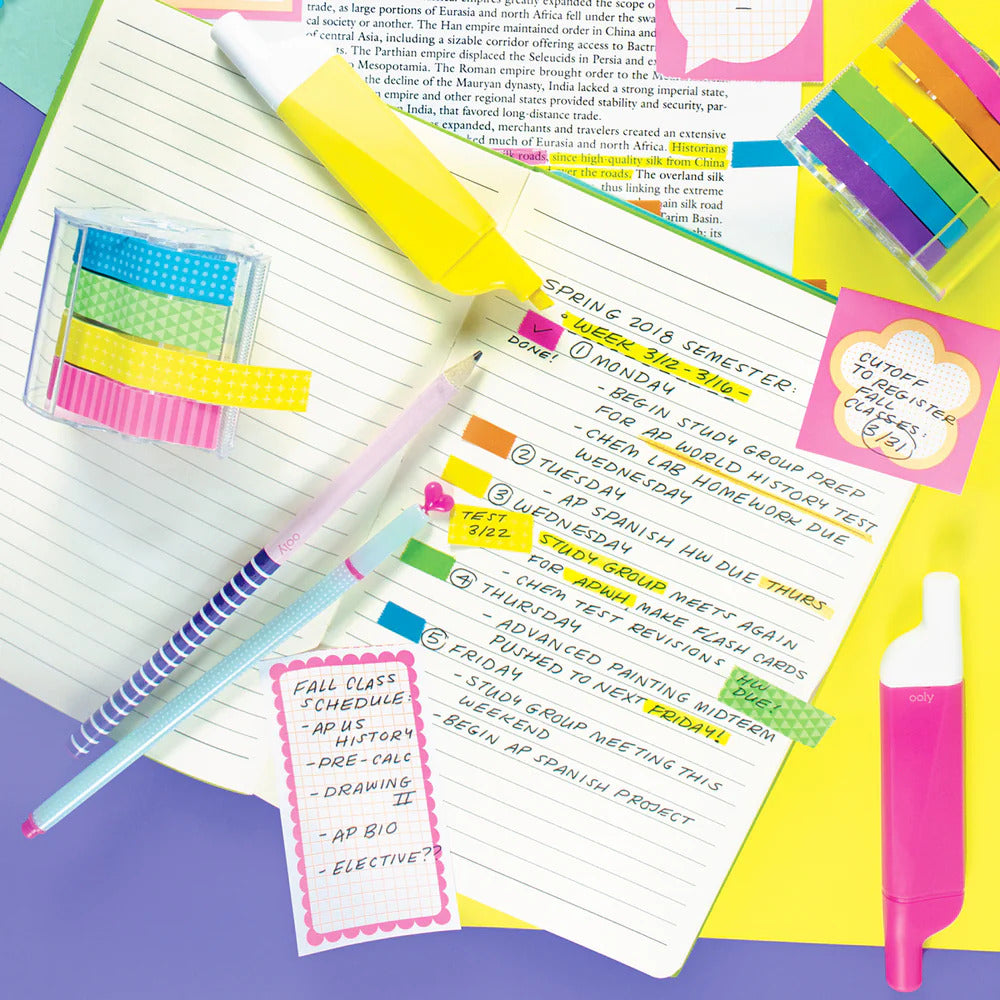 expanded the scope o
trade, as large portions of Eurasia and north Africa fell under the swa
cal society or another. The Han empire maintained order in China and
of central Asia, including a sizable corridor offering access to Bactr
ts. The Parthian empire displaced the Seleucids in Persia and ex
Mesopotamia. The Roman empire brought order to the
the decline of the Mauryan dynasty, India lacked a strong imperial state,
empire and other regional states provided stability and security, par-
India, that favored long-distance trade.
expanded, merchants and travelers created an extensive
ked much of Eurasia and north Africa. Historians
silk roads, since high-quality silk from China
over the roads. The overland silk
thus linking the extreme
ain silk road
Tarim Basin.
its
SPRING 2018 SEMESTER:
• WEEK 3/12 - 3/16 -
✓
DONE!
① MONDAY
- BEGIN STUDY GROUP PREP
FOR AP WORLD HISTORY TEST
- CHEM LAB HOMEWORK DUE
WEDNESDAY
② TUESDAY
- AP SPANISH HW DUE THURS
③ WEDNESDAY
TEST
3/22
STUDY GROUP MEETS AGAIN
FOR APWH MAKE FLASH CARDS
- CHEM TEST REVISIONS
④ THURSDAY
- ADVANCED PAINTING MIDTERM
PUSHED TO NEXT FRIDAY!
HW
DUE!
⑤ FRIDAY
- STUDY GROUP MEETING THIS
WEEKEND
- BEGIN AP SPANISH PROJECT
CUTOFF
TO REGISTER
FALL
CLASSES:
3/31
FALL CLASS
SCHEDULE:
- AP US
HISTORY
- PRE-CALC
- DRAWING
II
- AP BIO
- ELECTIVE??
ooly
ooly